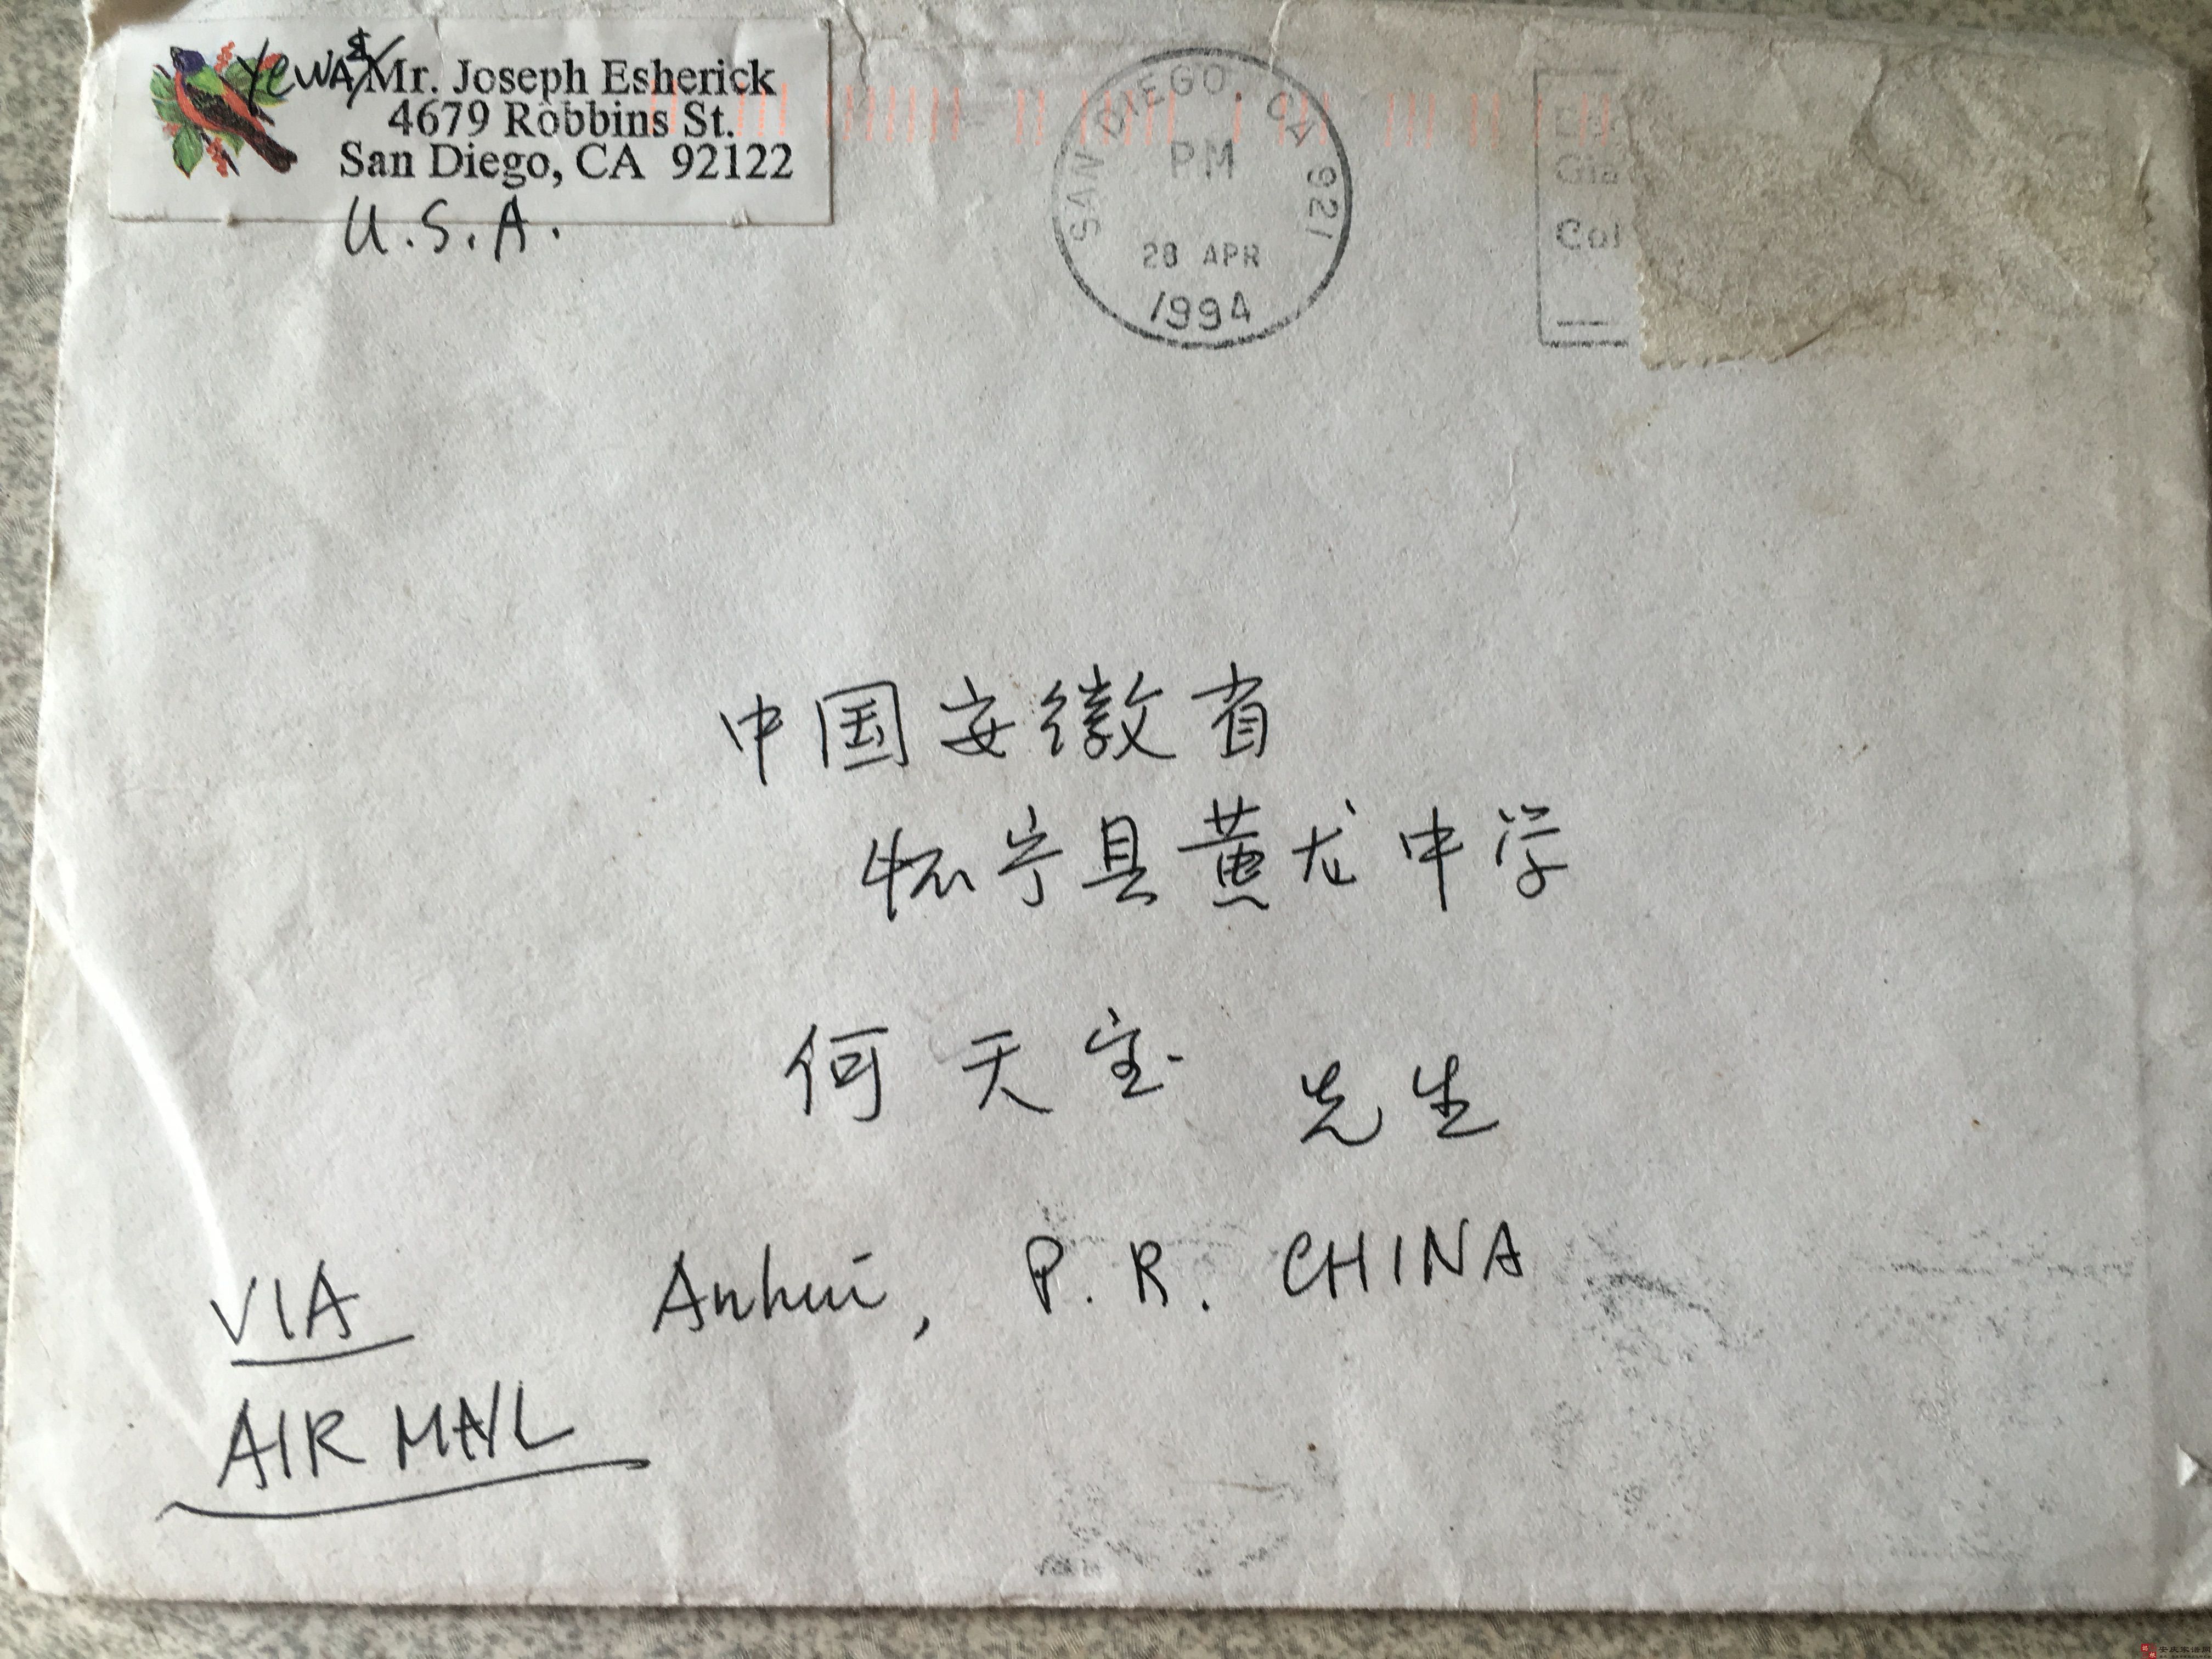 Yewa & Mr. Joseph Esherick
4679 Robbins St.
San Diego, CA 92122
U.S.A.
SAN DIEGO, CA 921
PM
28 APR
1994
Gia
Col
中国安徽省
怀宁县黄龙中学
何天宝 先生
Anhui, P. R. CHINA
VIA
AIR MAIL